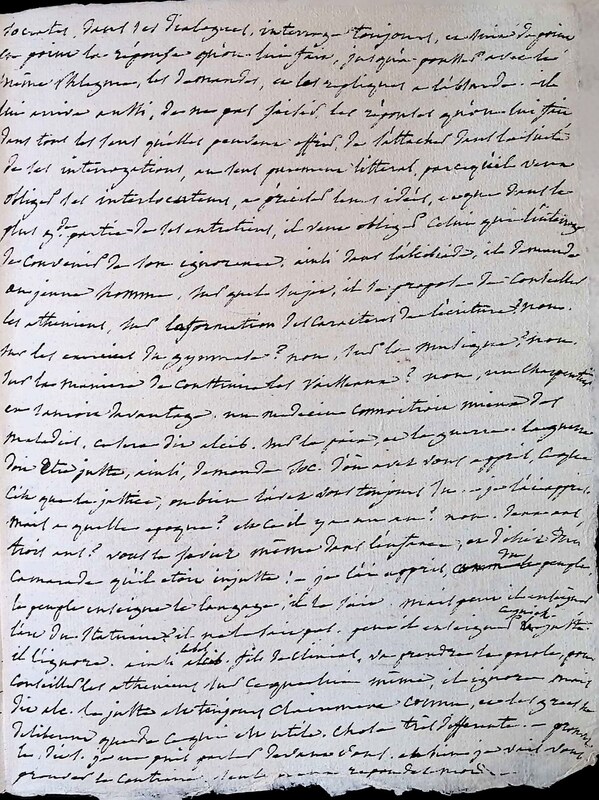 Socrates, dans ses dialogues, interroge toujours, et suis de point
en point la réponse qu'on lui fait, jusqu'à avec le
même phlegme, les demandes, et les repliques à l'absurde. il
lui arrive aussi, de ne pas saisir, les réponses qu'on lui fait
dans tous les sens qu'elles peuvent offrir, de s'attacher dans la suite
de ses interrogations, au sens purement litteral, parcequ'il veut
obliger ses interlocuteurs, a préciser leurs idées, et que dans la
plus gde partie de ses entretiens, il veut obliger celui qu'il interroge
de convenir de son ignorance. ainsi dans l'alcibiade, il demande
au jeune homme, sur quel sujet, il se propose de conseiller
les atheniens, sur la formation des caracteres de l'écriture? non.
sur les exercices du gymnase? non, sur la musique? non.
sur la maniere de construire les vaisseaux? non, un charpentier
en sauroit davantage. un medecin connoitroit mieux les
maladies, ce sera dit alcib. sur la paix, et la guerre. la guerre
doit être juste, ainsi, demande soc. d'où avez vous appris, ce que
c'est que la justice, ou bien l'avez vous toujours su. – je l'ai appris.
mais a quelle epoque? est ce il y a un an? non. deux ans,
trois ans? vous le saviez même dans l'enfance, et disiez d'un
camarade qu'il étoit injuste! – je l'ai appris, du peuple.
le peuple enseigne le langage, il le sait. mais peut il enseigner
l'art du statuaire? il ne le sait pas. peut il enseigner ce qui est juste
il l'ignore. ainsi alcib, fils de clinias, va prendre la parole, pour
conseiller les atheniens sur ce que lui même, il ignore. mais
dit alc. le juste est toujours clairement connu, et les grecs ne
deliberent que de ce qui est utile, chose très differente. – prouvez
le, je ne puis parler devant vous. eh bien je vais vous
prouver le contraire, repondez moi. –